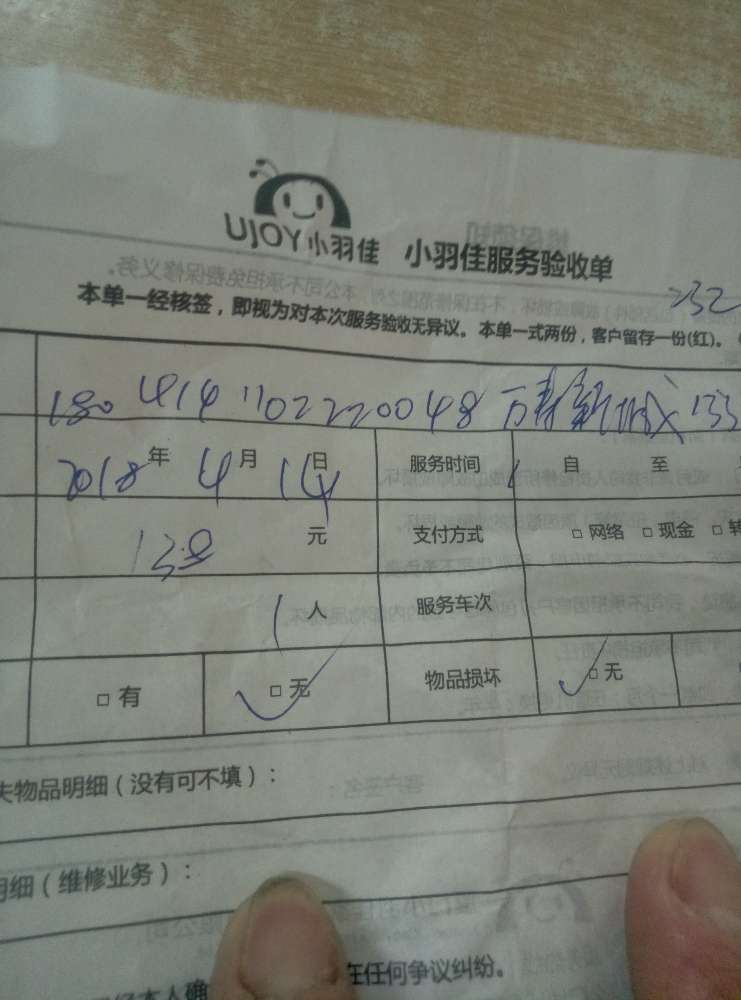 UJOY小羽佳 小羽佳服务验收单
232
本单一经核签，即视为对本次服务验收无异议。本单一式两份，客户留存一份(红)。
1804141102220048 万寿新城 133
2018年4月14日 服务时间 自 至
元 支付方式 □网络 □现金 □转
1人 服务车次
□有 □无 物品损坏 □无
失物品明细（没有可不填）：
明细（维修业务）：
经本人确
在任何争议纠纷。